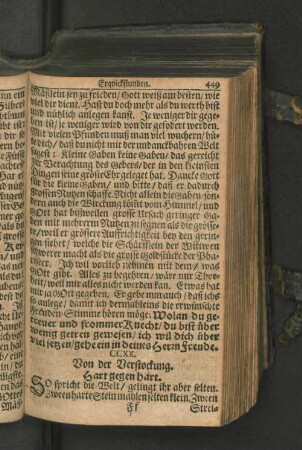 Erquickstunden. 449
Mäßlein sey zu frieden/ Gott weiß am besten/ wie
viel dir dient. Hast du doch mehr als du werth bist
und nützlich anlegen kanst. Je weniger dir gege-
ben ist/ je weniger wird von dir gefodert werden.
Mit vielen Pfunden muß man viel wuchern/ hü-
te dich/ daß du nicht mit der undanckbahren Welt
sagest: Kleine Gaben keine Gaben/ das gereicht
zur Verachtung des Gebers/ der in den kleinsten
Dingen seine grösse Ehr geleget hat. Dancke Gott
für die kleine Gaben/ und bitte/ daß er dadurch
grossen Nutzen schaffe. Nicht allein die Gaben/ son-
dern auch die Würckung kömt vom Himmel/ und
GOtt hat bißweilen grosse Ursach geringer Ga-
ben mit mehrerm Nutzen zu segnen als die grösse-
re/ weil er grössere Auffrichtigkeit bey den gerin-
gen siehet/ welche die Schärfflein der Wittwen
werther macht als die grosse Goldstücke der Pha-
riseer. Ich wil vorlieb nehmen mit dem/ was
GOtt gibt. Alles zu begehren/ wäre mir Thor-
heit/ weil mir alles nicht werden kan. Etwas hat
mir ja GOtt gegeben. Er gebe mir auch/ daß ichs
so anlege/ damit ich dermahleins die erwünschte
Freuden-Stimme hören möge: Wolan du ge-
treuer und frommer Knecht/ du bist über
wenig getreu gewesen/ ich wil dich über
viel setzen/ gehe ein in deines Herrn Freude.
CCXX.
Von der Verstockung.
Hart gegen hart.
SO spricht die Welt/ gelingt ihr aber selten.
Zween harte Stein mahlen selten klein. Zween
Ff Strei-